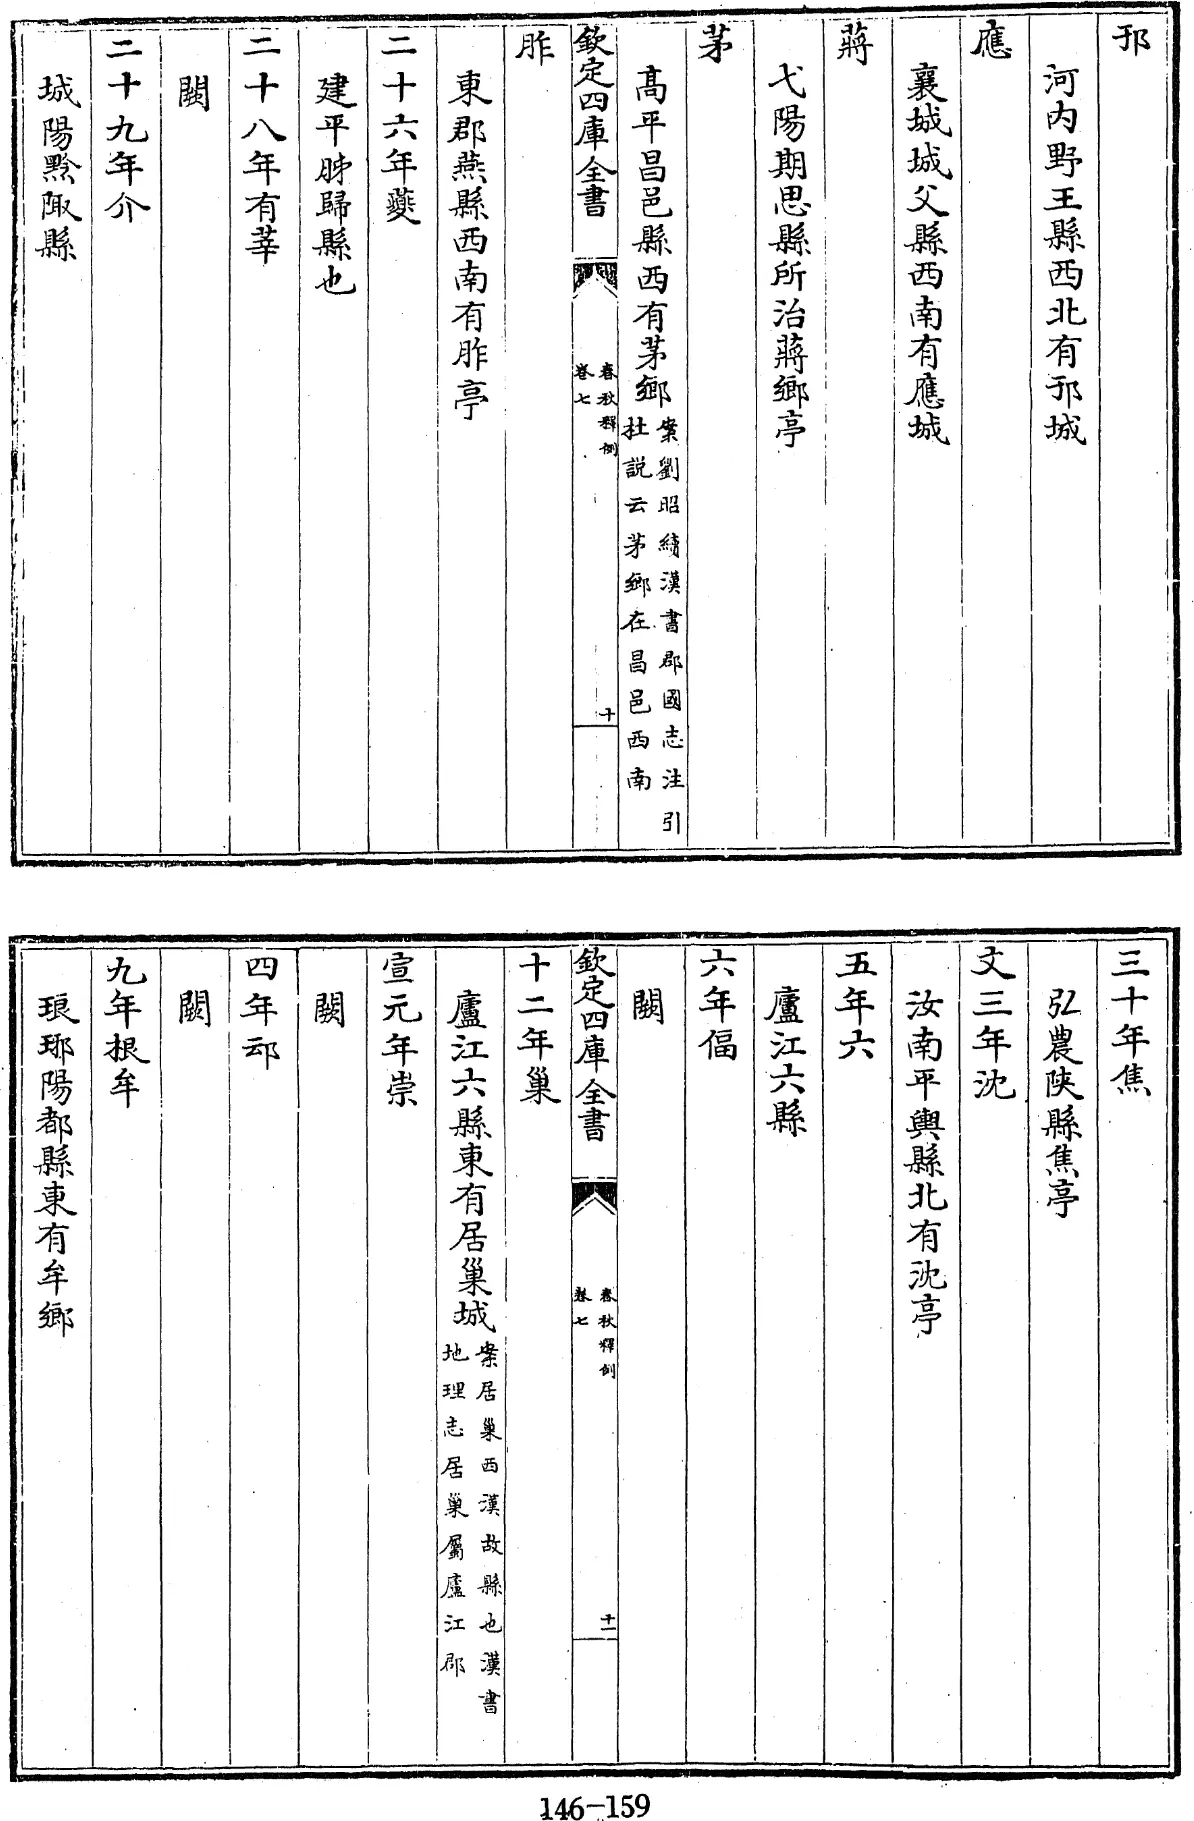 邘
河内野王縣西北有邘城
應
襄城城父縣西南有應城
蔣
弋陽期思縣所治蔣鄉亭
茅
髙平昌邑縣西有茅鄉
案劉昭續漢書郡國志注引
杜説云茅鄉在昌邑西南
欽定四庫全書
春秋釋例
卷七
十
胙
東郡燕縣西南有胙亭
二十六年夔
建平秭歸縣也
二十八年有莘
闕
二十九年介
城陽黔陬縣
三十年焦
弘農陜縣焦亭
文三年沈
汝南平輿縣北有沈亭
五年六
廬江六縣
六年偪
闕
欽定四庫全書
春秋釋例
卷七
十一
十二年巢
廬江六縣東有居巢城
案居巢西漢故縣也漢書
地理志居巢屬廬江郡
宣元年崇
闕
四年䢵
闕
九年根牟
琅琊陽都縣東有牟鄉
146-159